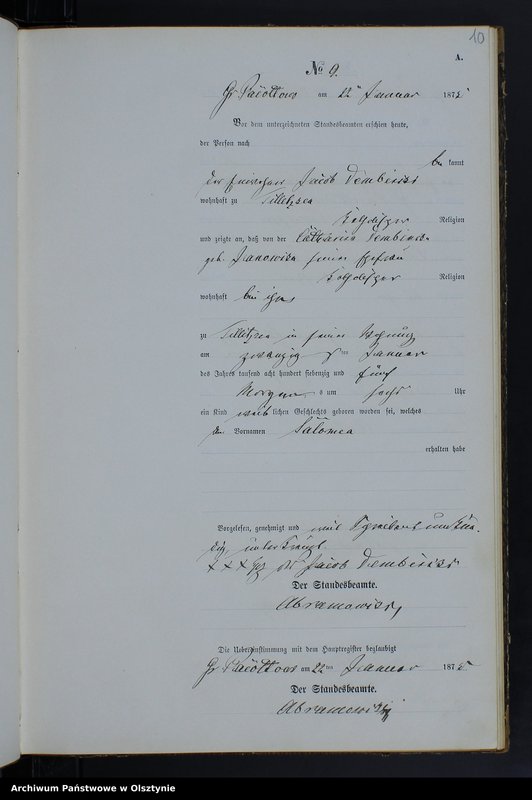 10
A.
No 9.
Gr. Pacoltowo am 22ten Januar 1875
Vor dem unterzeichneten Standesbeamten erschien heute,
der Person nach
be kannt
der Jacob Dembinski
wohnhaft zu Tillitzken
katholischer Religion
und zeigte an, daß von der Catharina Dembinska
geb. seiner Ehefrau
katholischer Religion
wohnhaft bei ihm
zu Tillitzken in seiner Wohnung
am zwanzig sten Januar
des Jahres tausend acht hundert siebenzig und fünf
Morgens um sechs Uhr
ein Kind weib lichen Geschlechts geboren worden sei, welches
den Vornamen Salomea
erhalten habe
Vorgelesen, genehmigt und weil Schreibens unkun-
dig unterkreuzt.
XXX des Jacob Dembinski
Der Standesbeamte.
Abramowski
Die Uebereinstimmung mit dem Hauptregister beglaubigt
Gr. Pacoltowo am 22ten Januar 1875
Der Standesbeamte.
Abramowski
Archiwum Państwowe w Olsztynie